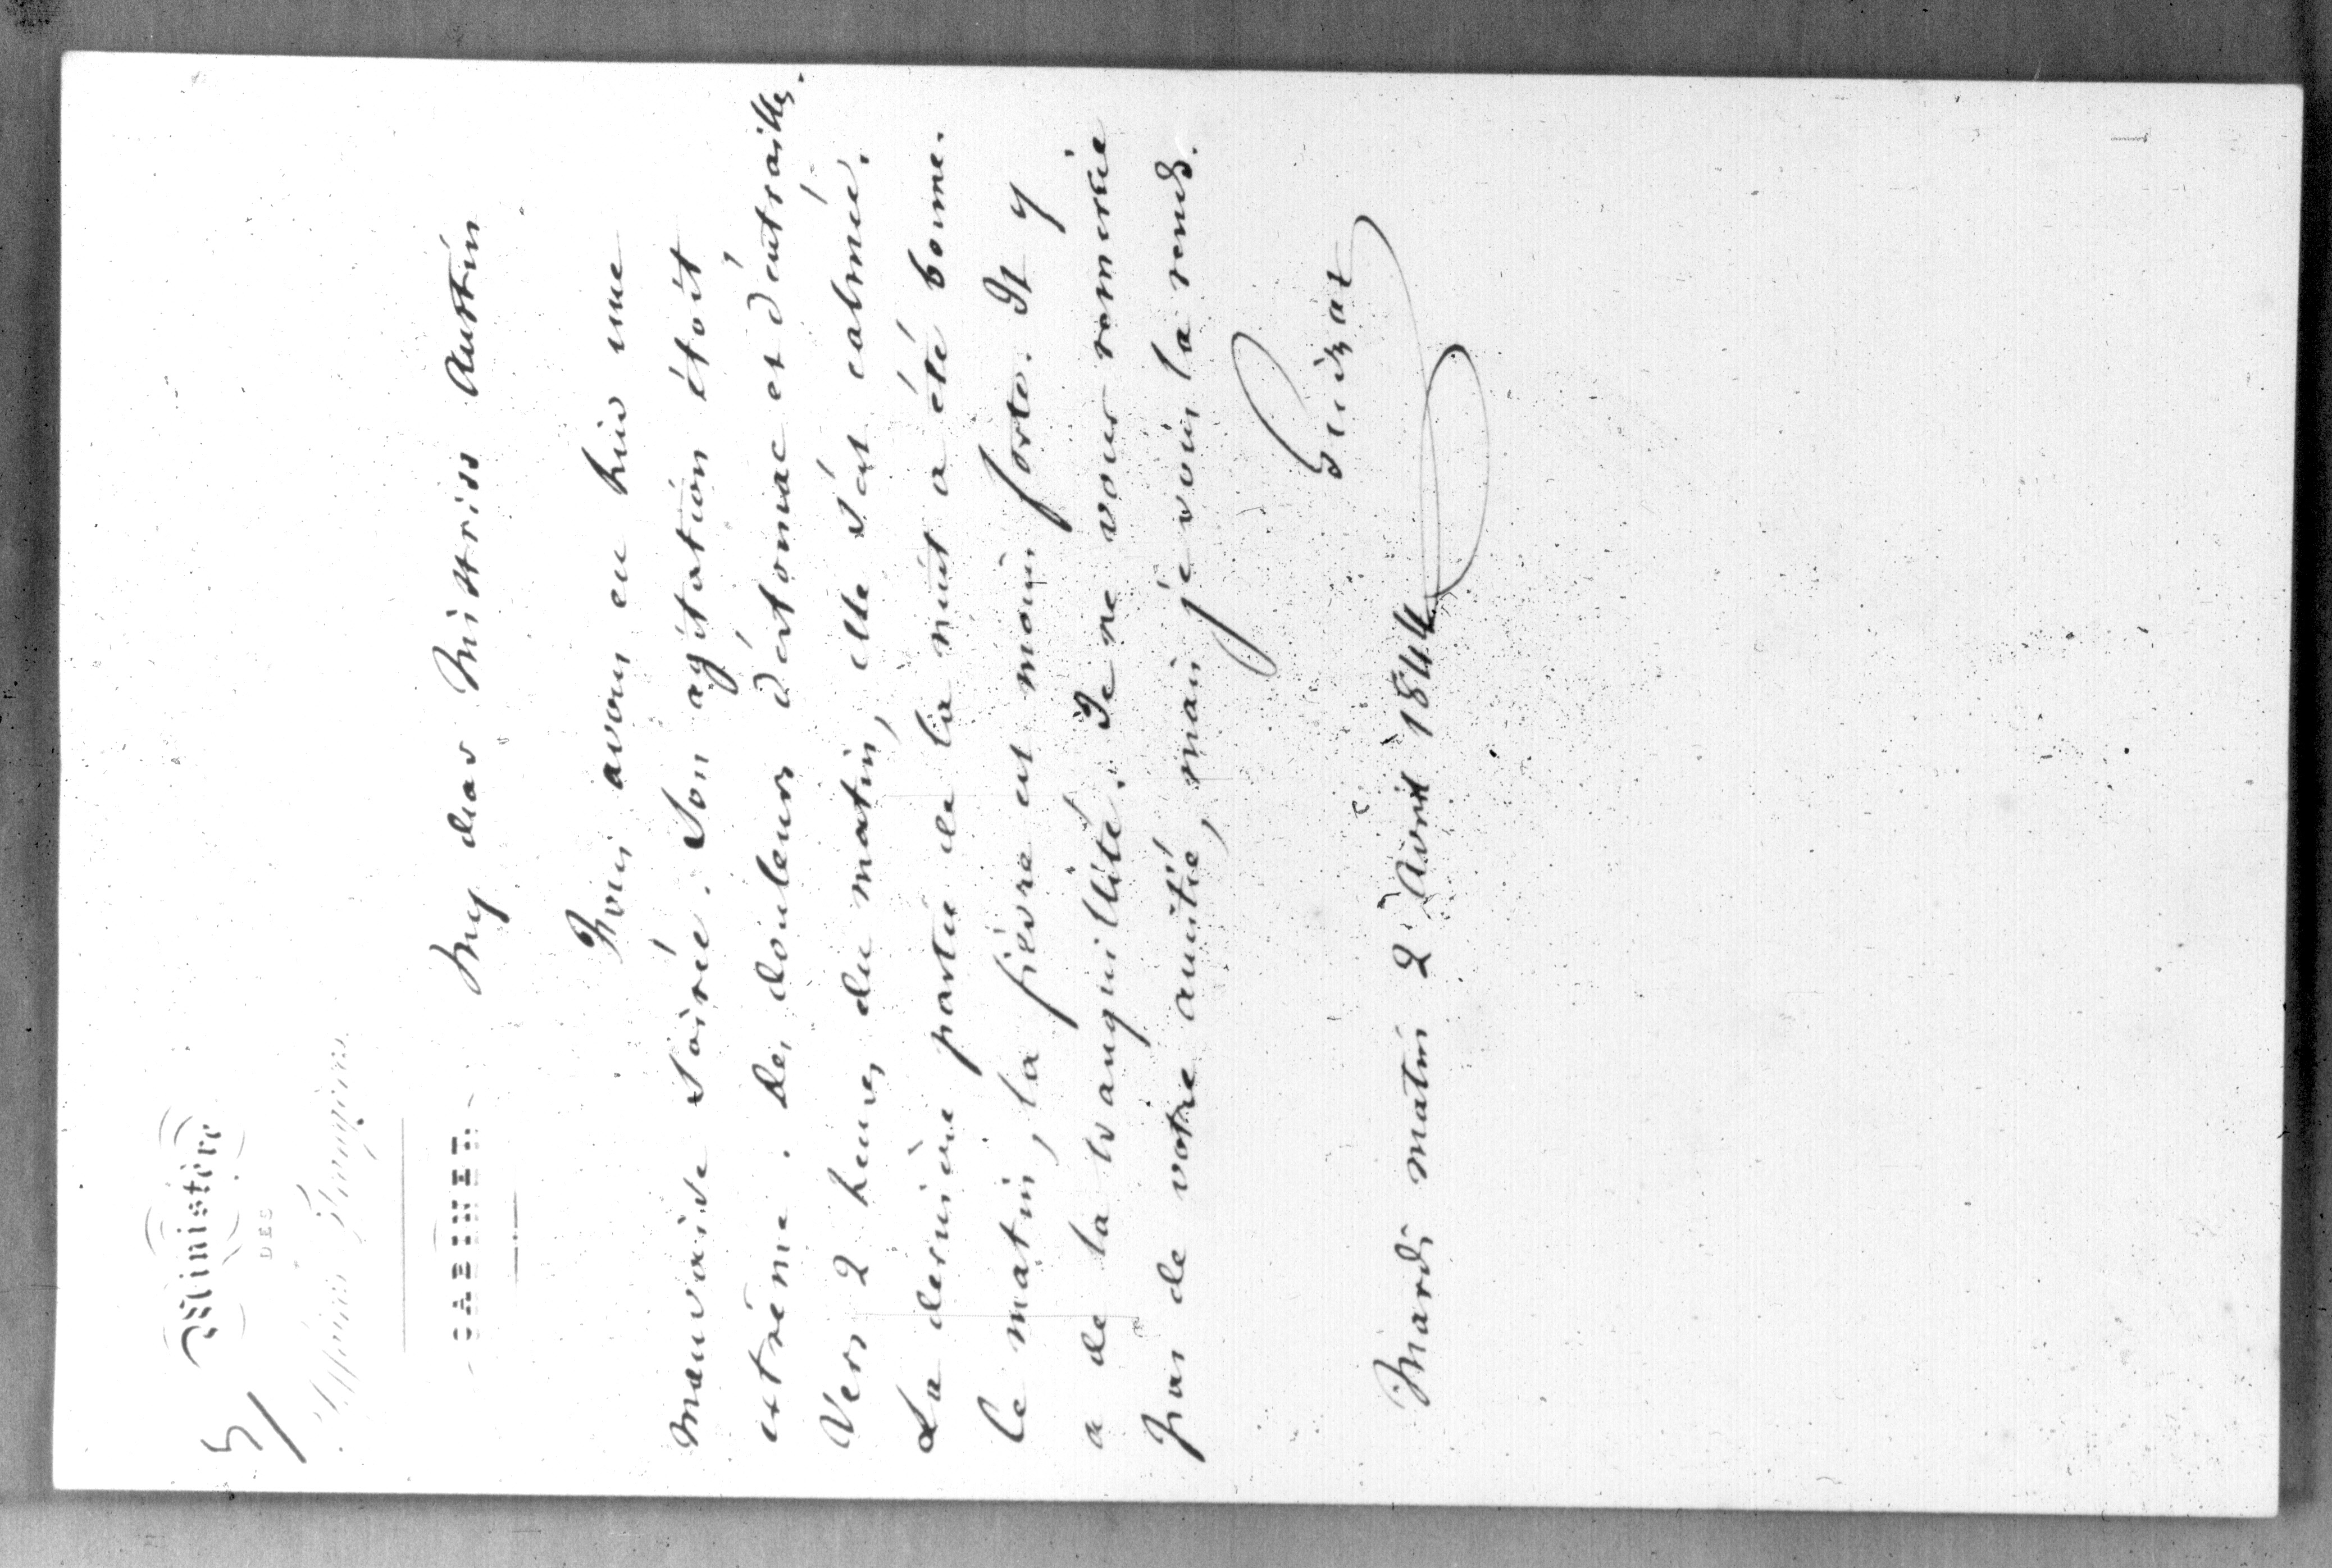 5/
Ministère
DES
Affaires Etrangères
CABINET
My dear Mistriss Austin
Nous avons eu hier une
mauvaise soirée. Son agitation étoit
extrême. Des douleurs d'estomac et d'entrailles.
Vers 2 heures du matin, elle s'est calmée.
La dernière partie de la nuit a été bonne.
Ce matin, la fièvre est moins forte. Il y
a de la tranquillité. Je ne vous remercie
pas de votre amitié, mais je vous la rends.
Guizot
Mardi matin 2 Avril 1844